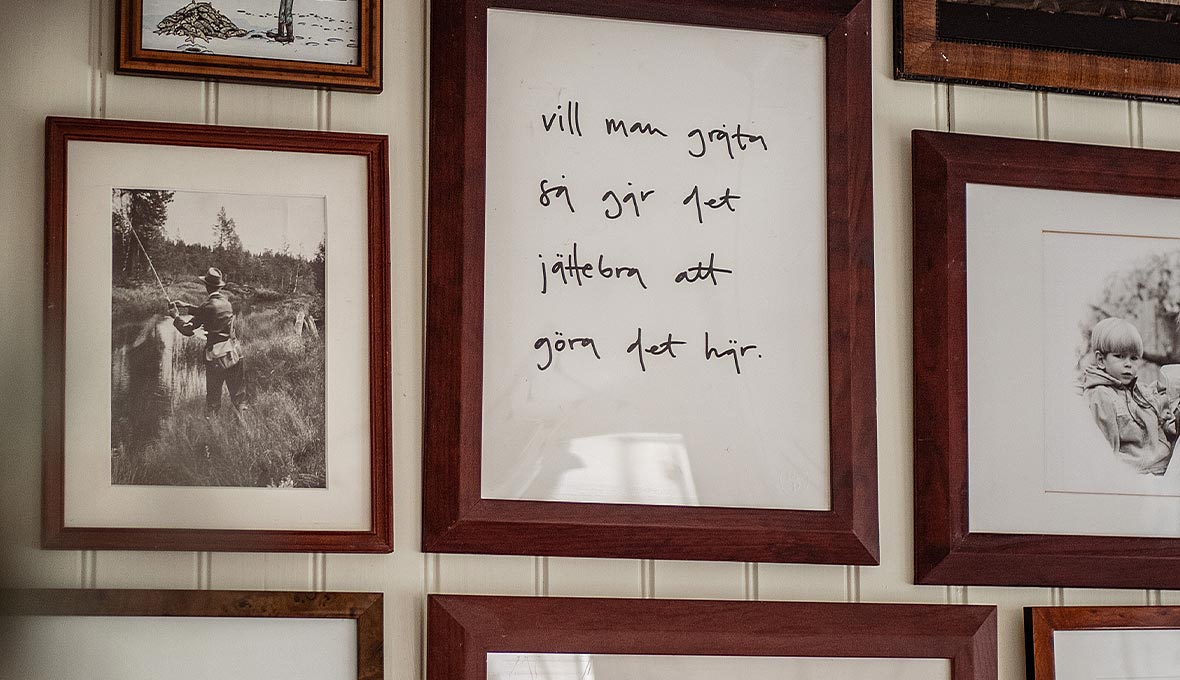 vill man gråta
så går det
jättebra att
göra det här.